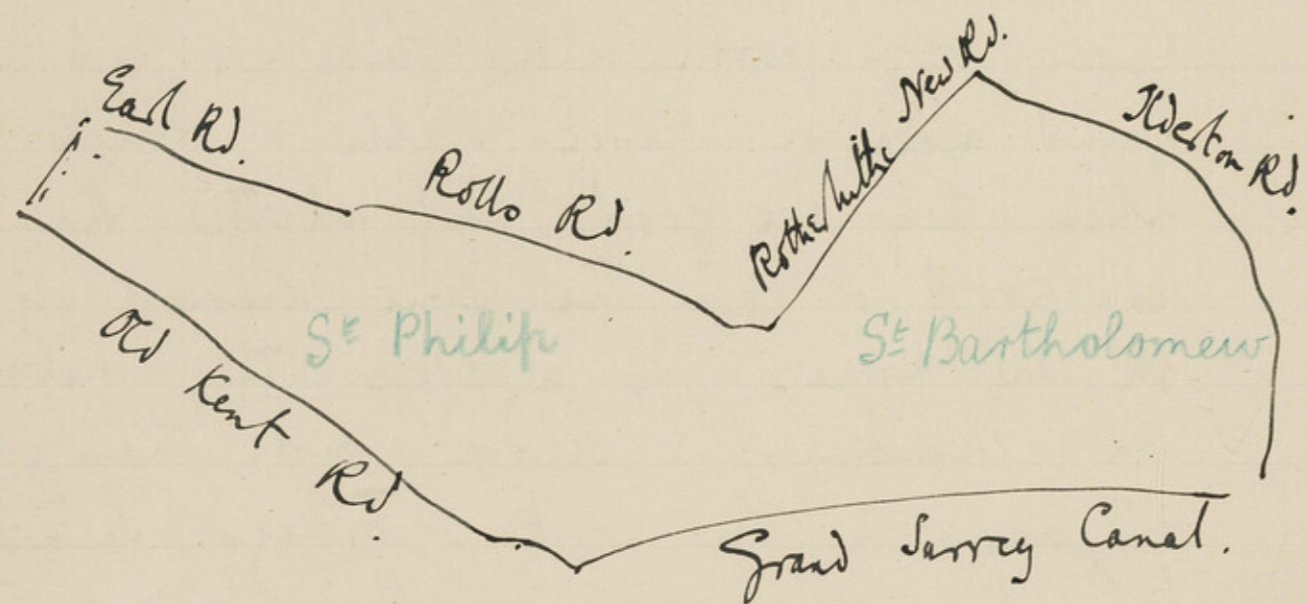 Earl Rd.
Rolls Rd.
Rotherhithe New Rd.
Ilderton Rd.
Old Kent Rd.
St Philip
St Bartholomew
Grand Surrey Canal.